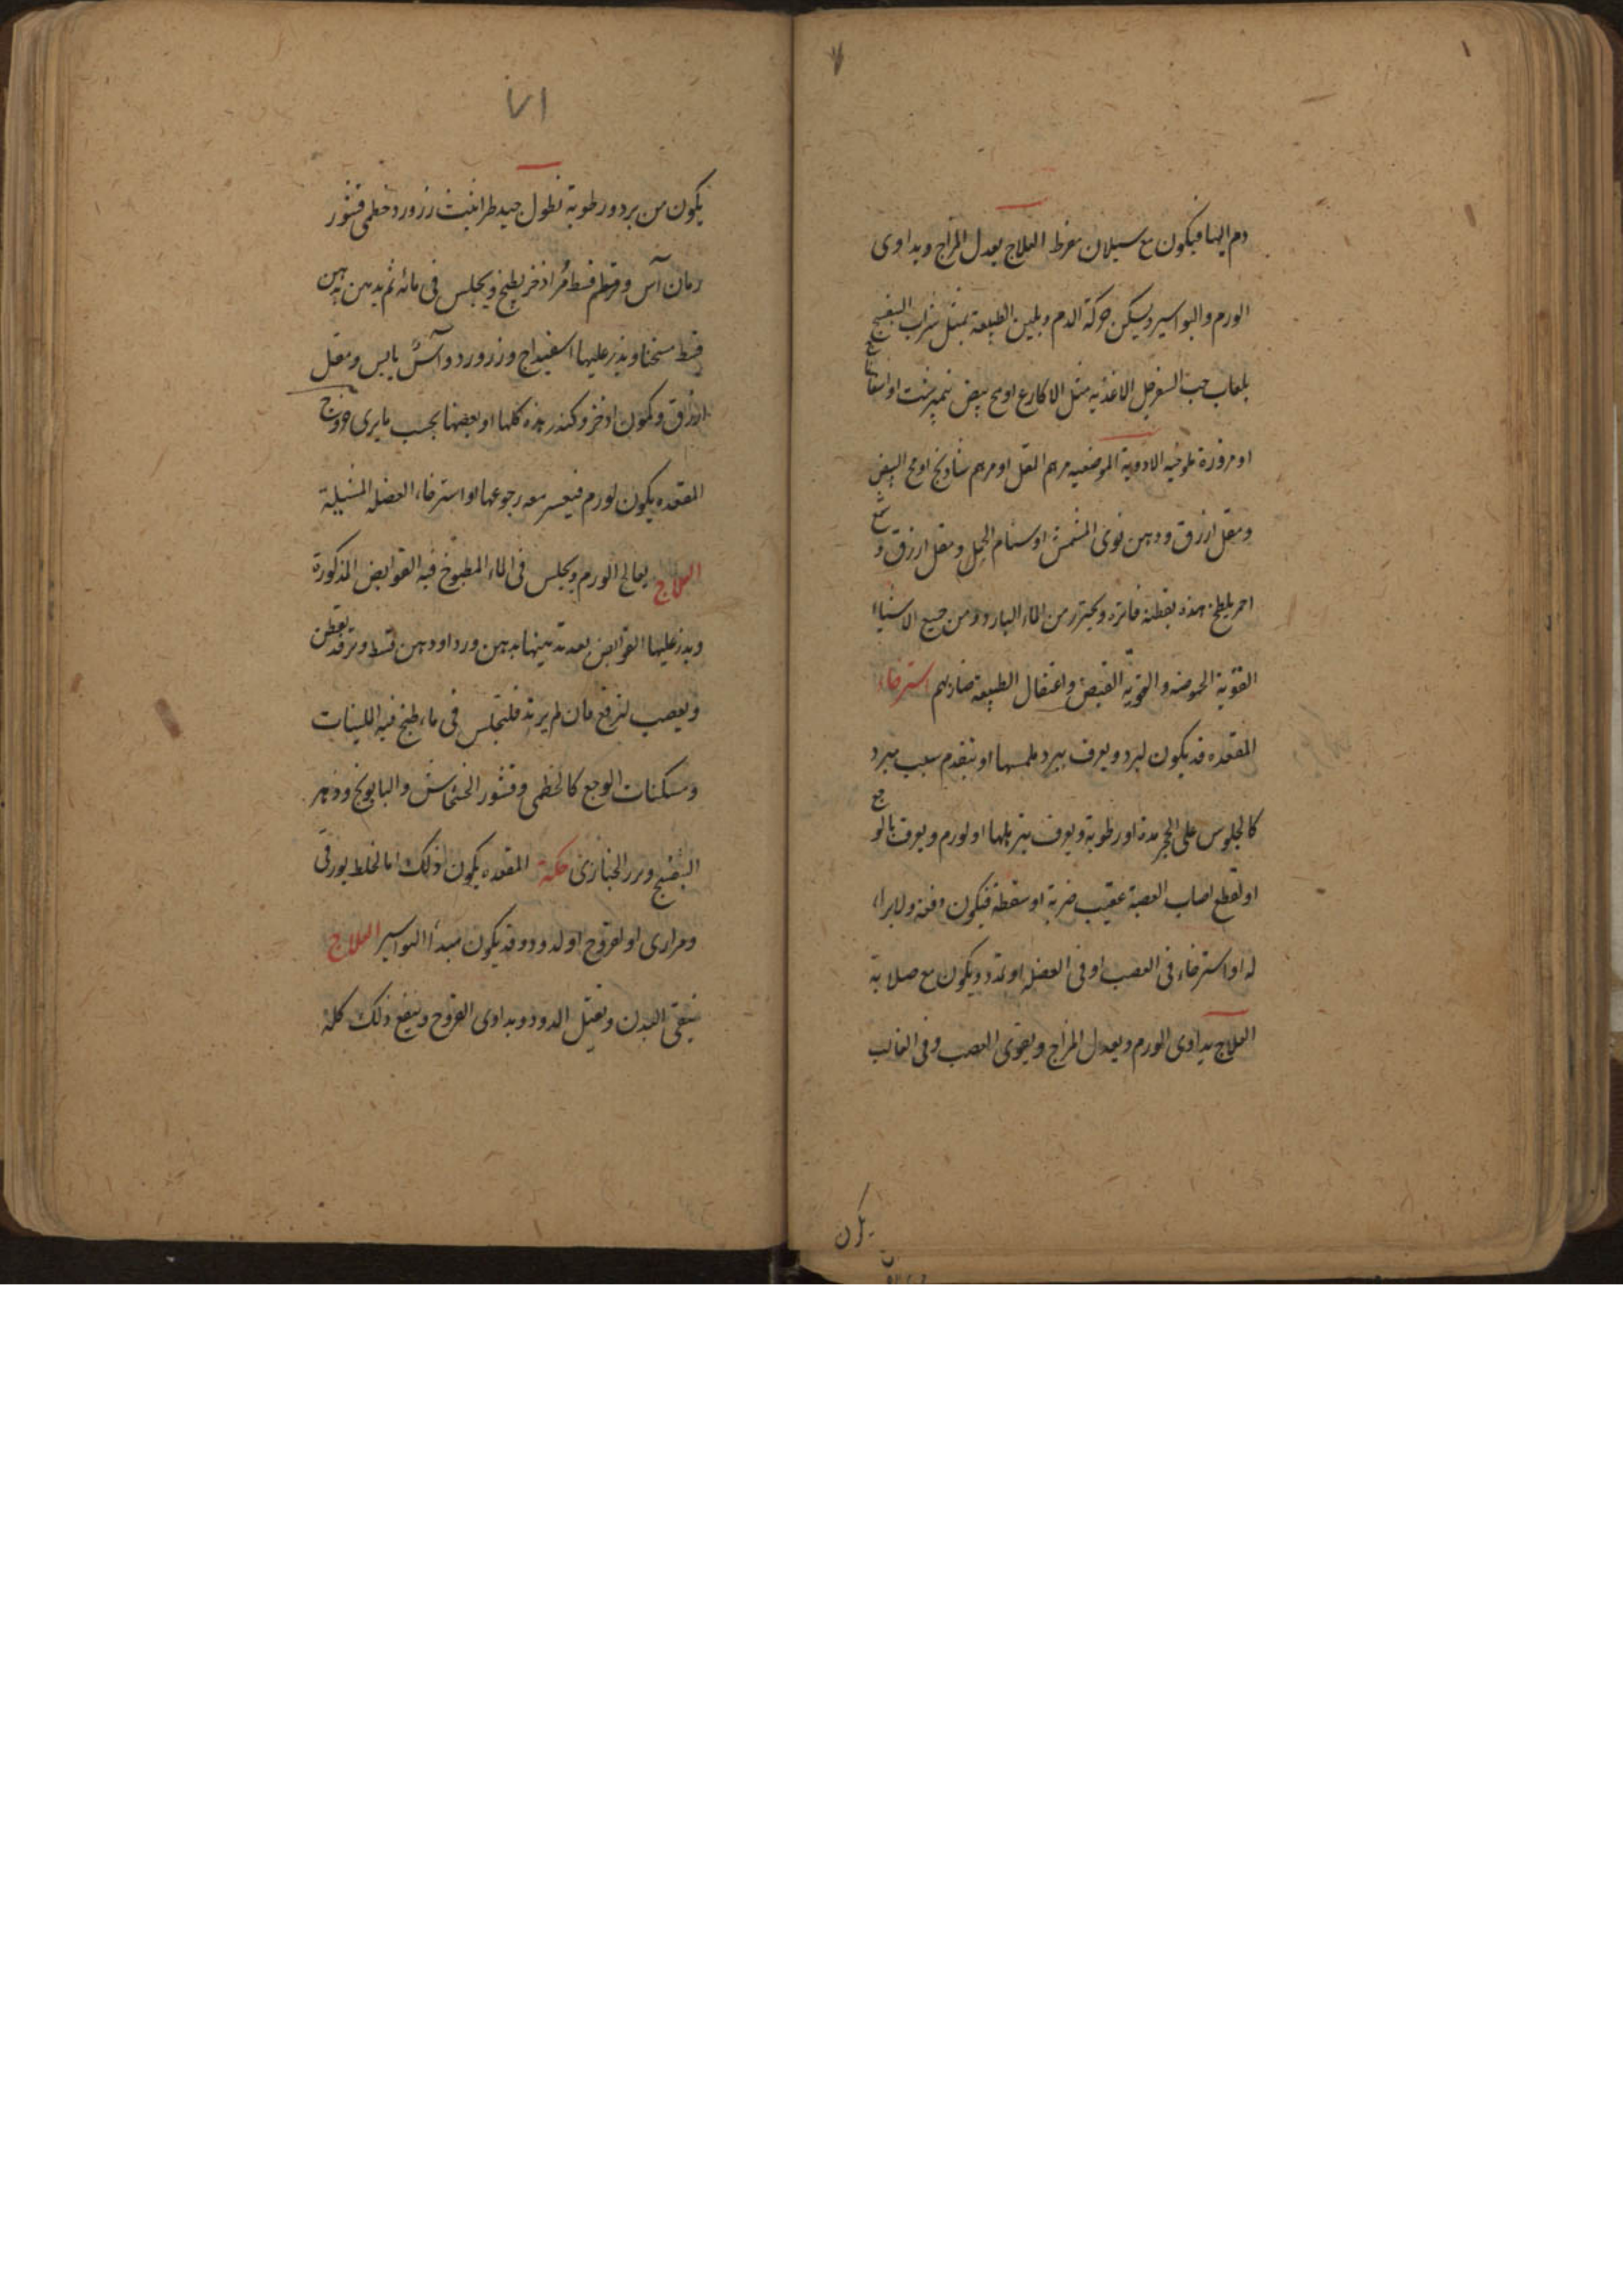 دم اليها فيكون مع سيلان مفرط العلاج يعدل المزاج ويداوى
الورم والبواسير ويسكن حركة الدم ويلين الطبيعة بمثل شراب البنفسج
بلعاب حب السفرجل الاغذيه مثل الاكارع اومح بيض نيمبرشت او اسفاناخ
او مزورة ملوخيه الادوية الموضعيه مرهم المقل او مرهم شادنج اومح البيض
ومقل ازرق ودهن نوى المشمش او سنام الجمل ومقل ازرق و شمع
احمر يلطخ هذه بقطنة فاترة ويحترز من الماء البارد ومن جميع الاشياء
القوية الحموضه والقوية القبض واعتقال الطبيعة ضار لهم استرخاء
المقعده قد يكون لبرد ويعرف ببرد ملمسها او بتقدم سبب مبرد
كالجلوس على الحجر مدة او رطوبة ويعرف بترهلها او لورم ويعرف بالوجع
او لقطع اصاب العصبة عقيب ضربة او سقطة فيكون دفعة ولا براء
له او استرخاء فى العصب او فى العضل او تمدد ويكون مع صلابة
العلاج يداوى الورم ويعدل المزاج ويقوى العصب وفى الغالب
يكون
٧١
يكون من برد ورطوبة نطول جيد طراثيث زرورد خطمى قشور
رمان آس وقرظ قسط مُر اذخر يطبخ ويجلس فى مائه ثم يدهن بدهن
قسط مسخنا ويذر عليها اسفيداج وزرورد وآس يابس ومقل
ازرق وكمون اذخر وكندر هذه كلها او بعضها بحسب ما يرى خروج
المقعده يكون لورم فيعسر معه رجوعها او استرخاء العضلة المشيلة
العلاج يعالج الورم ويجلس فى الماء المطبوخ فيه القوابض المذكورة
ويذر عليها القوابض بعد تدهينها بدهن ورد او دهن قسط وترفد بقطن
ويعصب لترتفع فان لم يرتد فليجلس فى ماء طبخ فيه الملينات
ومسكنات الوجع كالخطمى وقشور الخشخاش والبابونج وزهر
البنفسج وبزر الخبازى حكة المقعده يكون ذلك اما لخلط بورقى
ومرارى او لقروح او لدود وقد يكون مبدأ البواسير العلاج
ينقى البدن ويقتل الدود ويداوى القروح وينفع ذلك كله